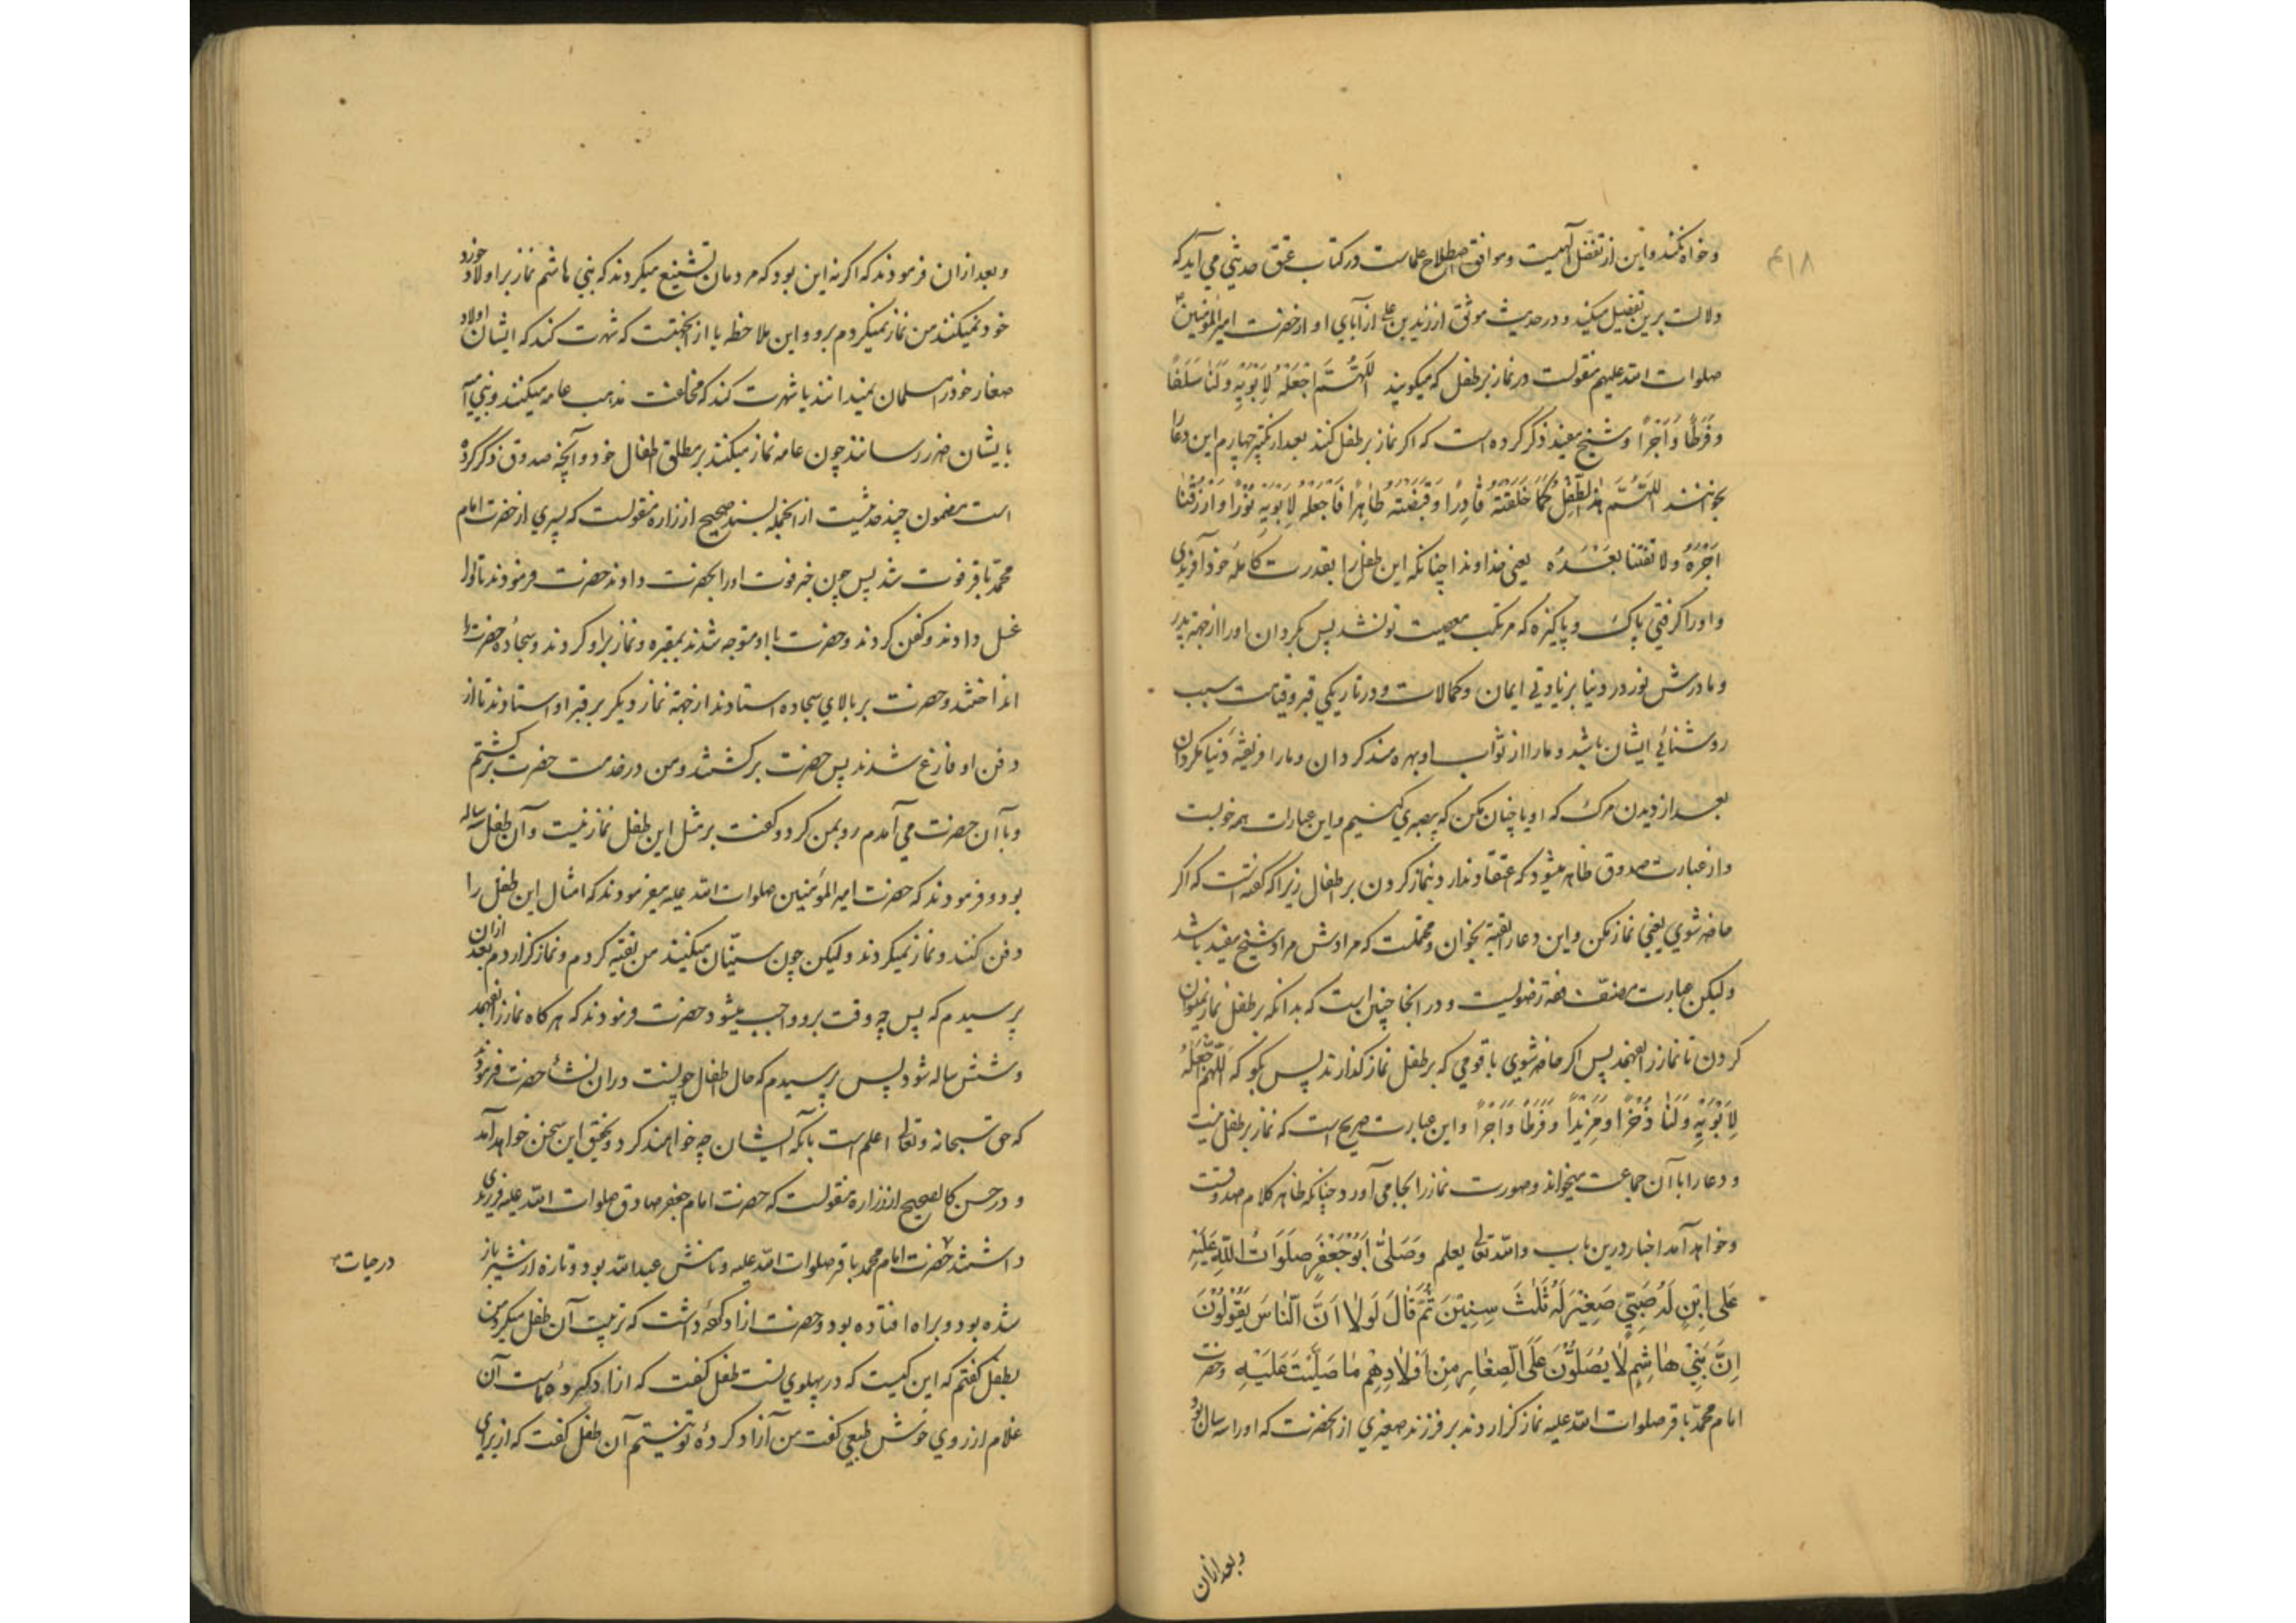 ۴۱۸
وخواه نکند واین از تفضل الهیست وموافق اصطلاح علماست ودر کتاب عتق حدیثی می آید که
دلالت برین تفصیل میکند ودر حدیث موثق از زید بن علی از آبای او از حضرت امیر المؤمنین
صلوات الله علیهم منقولست در نماز بر طفل که میکویند اَللّهُمَّ اجْعَلْهُ لِاَبَوَیْهِ وَلَنا سَلَفًا
وَفَرَطًا وَاَجْرًا وشیخ مفید ذکر کرده است که اکر نماز بر طفل کنند بعد از تکبیر چهارم این دعا
بخوانند اللّهُمَّ هذا الطِّفْلُ کَما خَلَقْتَهُ قادِرًا وَقَبَضْتَهُ طاهِرًا فَاجْعَلْهُ لِاَبَوَیْهِ نُوْرًا وَارْزُقْنا
اَجْرَهُ ولا تفتنا بَعْدَهُ یعنی خداوندا چنانکه این طفل را بقدرت کاملهٔ خود آفریدی
واورا کرفتی پاک وپاکیزه که مرتکب معصیت تو نشد پس بکردان اورا از جهة پدر
ومادرش نور در دنیا بزیادتی ایمان وکمالات ودر تاریکی قبر وقیامت سبب
روشنائی ایشان باشد ومارا از ثواب او بهره مند کردان ومارا فریفتهٔ دنیا مکردان
بعد از دیدن مرک که او یا چنان مکن که بیصبری کنیم واین عبارات همه خوبست
واز عبارت صدوق ظاهر میشود که اعتقاد ندارد بنماز کردن بر اطفال زیرا که کفته است که اکر
حاضر شوی یعنی نماز مکن واین دعا را تقیة بخوان ومحتملست که مرادش مراد شیخ مفید باشد
ولیکن عبارت مصنف فقه رضویست ودر انجا چنین است که بدانکه بر طفل نماز نمیتوان
کردن تا نماز را بفهمد پس اکر حاضر شوی با قومی که بر طفل نماز کذارند پس بکو که اللّهم اجْعَلْهُ
لِاَبَوَیْهِ وَلَنا ذُخْرًا وَمَزِیْدًا وَفَرَطًا وَاَجْرًا واین عبارت صریح است که نماز بر طفل نیست
ودعا را با آن جماعت میخواند وصورت نماز را بجا می آورد چنانکه ظاهر کلام صدوقست
وخواهد آمد اخبار درین باب والله تعالی یعلم وَصَلّی اَبُوْجَعْفَرٍ صَلَوَاتُ اللّهِ عَلَیْهِ
عَلی اِبْنٍ لَهُ صَبِیٍّ صَغِیْرٍ لَهُ ثَلثُ سِنِیْنَ ثُمَّ قالَ لَوْلا اَنَّ النّاسَ یَقُوْلُوْنَ
اِنَّ بَنِیْ هاشِمٍ لا یُصَلُّوْنَ عَلَی الصِّغارِ مِنْ اَوْلادِهِمْ ما صَلَّیْتُ عَلَیْهِ وحضرت
امام محمد باقر صلوات الله علیه نماز کزاردند بر فرزند صغیری از آنحضرت که اورا سه سال بود
وبعد ازان
وبعد ازان فرمودند که اکر نه این بود که مردمان تشنیع میکردند که بنی هاشم نماز بر اولاد خورد
خود نمیکنند من نماز نمیکردم برو واین ملاحظه یا از آنجهتست که شهرت کند که ایشان اولاد
صغار خودرا مسلمان نمیدانند یا شهرت کند که مخالفت مذهب عامه میکنند وبنی امیه
بایشان ضرر رسانند چون عامه نماز میکنند بر مطلق اطفال خود وآنچه صدوق ذکر کرده
است مضمون چند حدیثست از انجمله بسند صحیح از زراره منقولست که پسری از حضرت امام
محمد باقر فوت شد پس چون خبر فوت اورا بحضرت دادند حضرت فرمودند تا اورا
غسل دادند وکفن کردند وحضرت با او متوجه شدند بمقبره ونماز برو کردند وسجادهٔ حضرت را
انداختند وحضرت بر بالای سجاده استادند از جهة نماز ودیکر بر قبر او استادند تا از
دفن او فارغ شدند پس حضرت برکشتند ومن در خدمت حضرت برکشتم
وبا آن حضرت می آمدم رو بمن کرد وکفت بر مثل این طفل نماز نیست وآن طفل سه ساله
بود وفرمودند که حضرت امیر المؤمنین صلوات الله علیه میفرمودند که امثال این طفل را
دفن کنند ونماز نمیکردند ولیکن چون سنّیان میکنند من تقیّه کردم ونماز کزاردم بعد ازان
پرسیدم که پس چه وقت برو واجب میشود حضرت فرمودند که هر کاه نماز را بفهمد
وشش ساله شود پس پرسیدم که حال اطفال چونست دران نشأ حضرت فرمودند
که حق سبحانه وتعالی اعلم است بآنکه ایشان چه خواهند کرد وتحقیق این سخن خواهد آمد
ودر حسن کالصحیح از زراره منقولست که حضرت امام جعفر صادق صلوات الله علیه فرزندی
داشتند حضرت امام محمد باقر صلوات الله علیه ونامش عبدالله بود وتازه از شیر باز
در حیات
شده بود وبراه افتاده بود وحضرت آزاد کردهٔ داشت که تربیت آن طفل میکرد من
بطفل کفتم که این کیست که در پهلوی تست طفل کفت که آزاد کردهٔ ماست آن
غلام از روی خوش طبعی کفت من آزاد کردهٔ تو نیستم آن طفل کفت که از برای